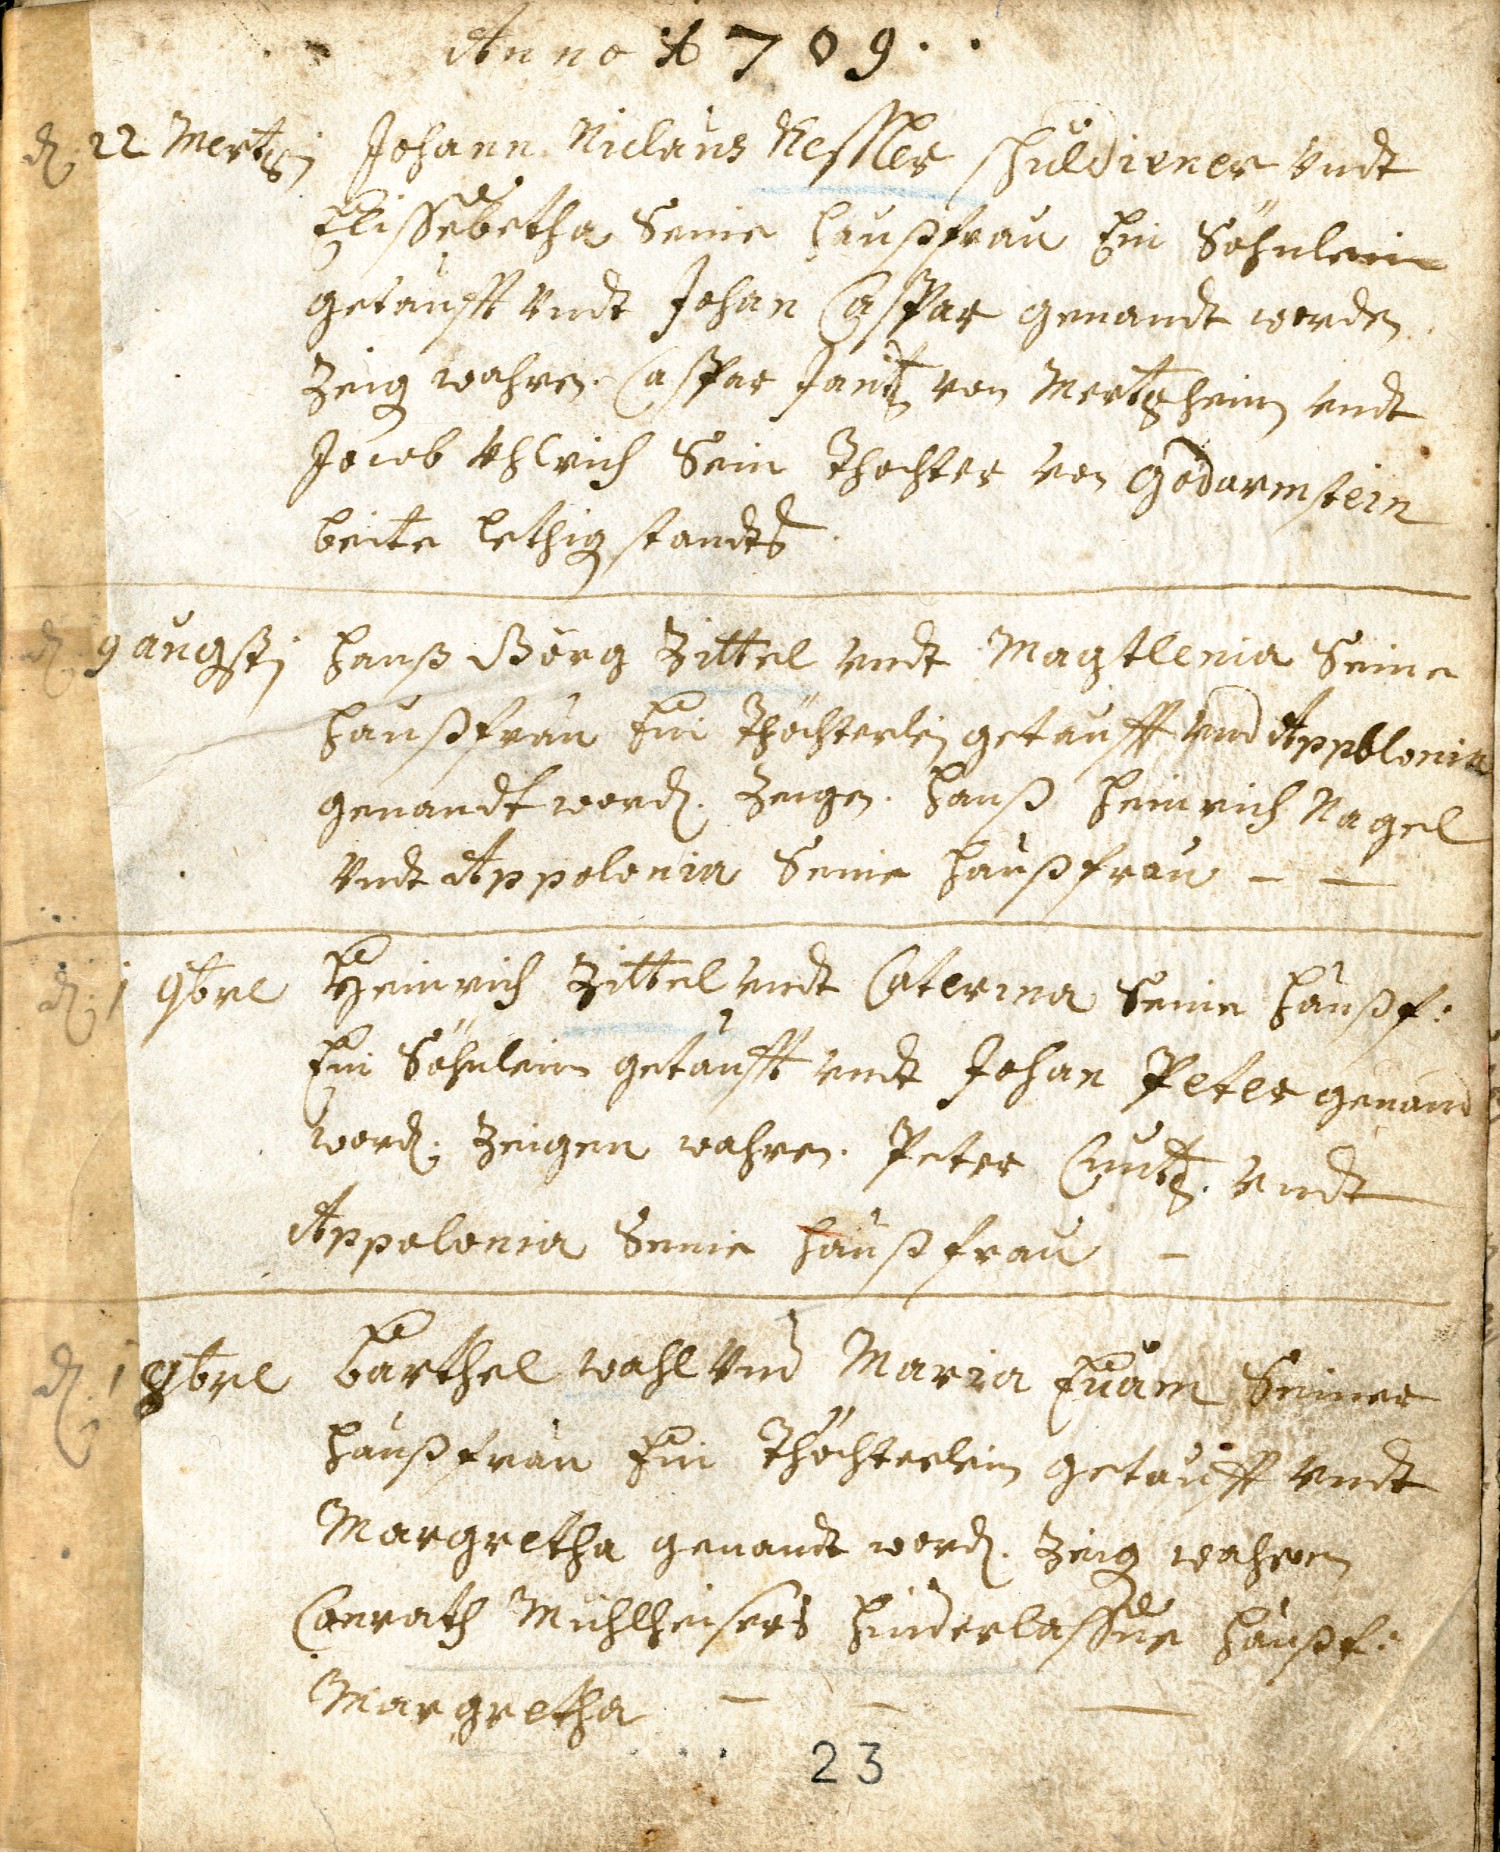 Anno 1709.
d. 22 Mertz Johann Niclaus Kessler schuldiener undt
Elissebetha Seine haußfrau Ein Söhnlein
getaufft undt Johan Caspar genandt worden
Zeig wahren. Caspar Jantz von Mertzheim undt
Jacob Uhlrich Sein Thochter von Godarmstein
beite lethig standts
d. 9 augsti hanß Görg Zittel undt Magtlenia Seine
haußfrau Ein Thöchterlein getaufft und Appolonia
genandt word. Zeigen. hanß Heinrich Nagel
undt Appolonia Seine haußfrau – –
d. 1 9bre Heinrich Zittel undt Caterina Seine haußf:
Ein Söhnlein getaufft undt Johan Peter genand
word. Zeigen wahren. Peter Cuntz. undt
Appolonia Seine haußfrau –
d. 1 9bre barthel wahl und Maria Euam Seiner
haußfrau Ein Thöchterlein getaufft undt
Margretha genandt word. Zeig wahren
Conrath Mühlheisers hinderlassne haußf:
Margretha – – –
23